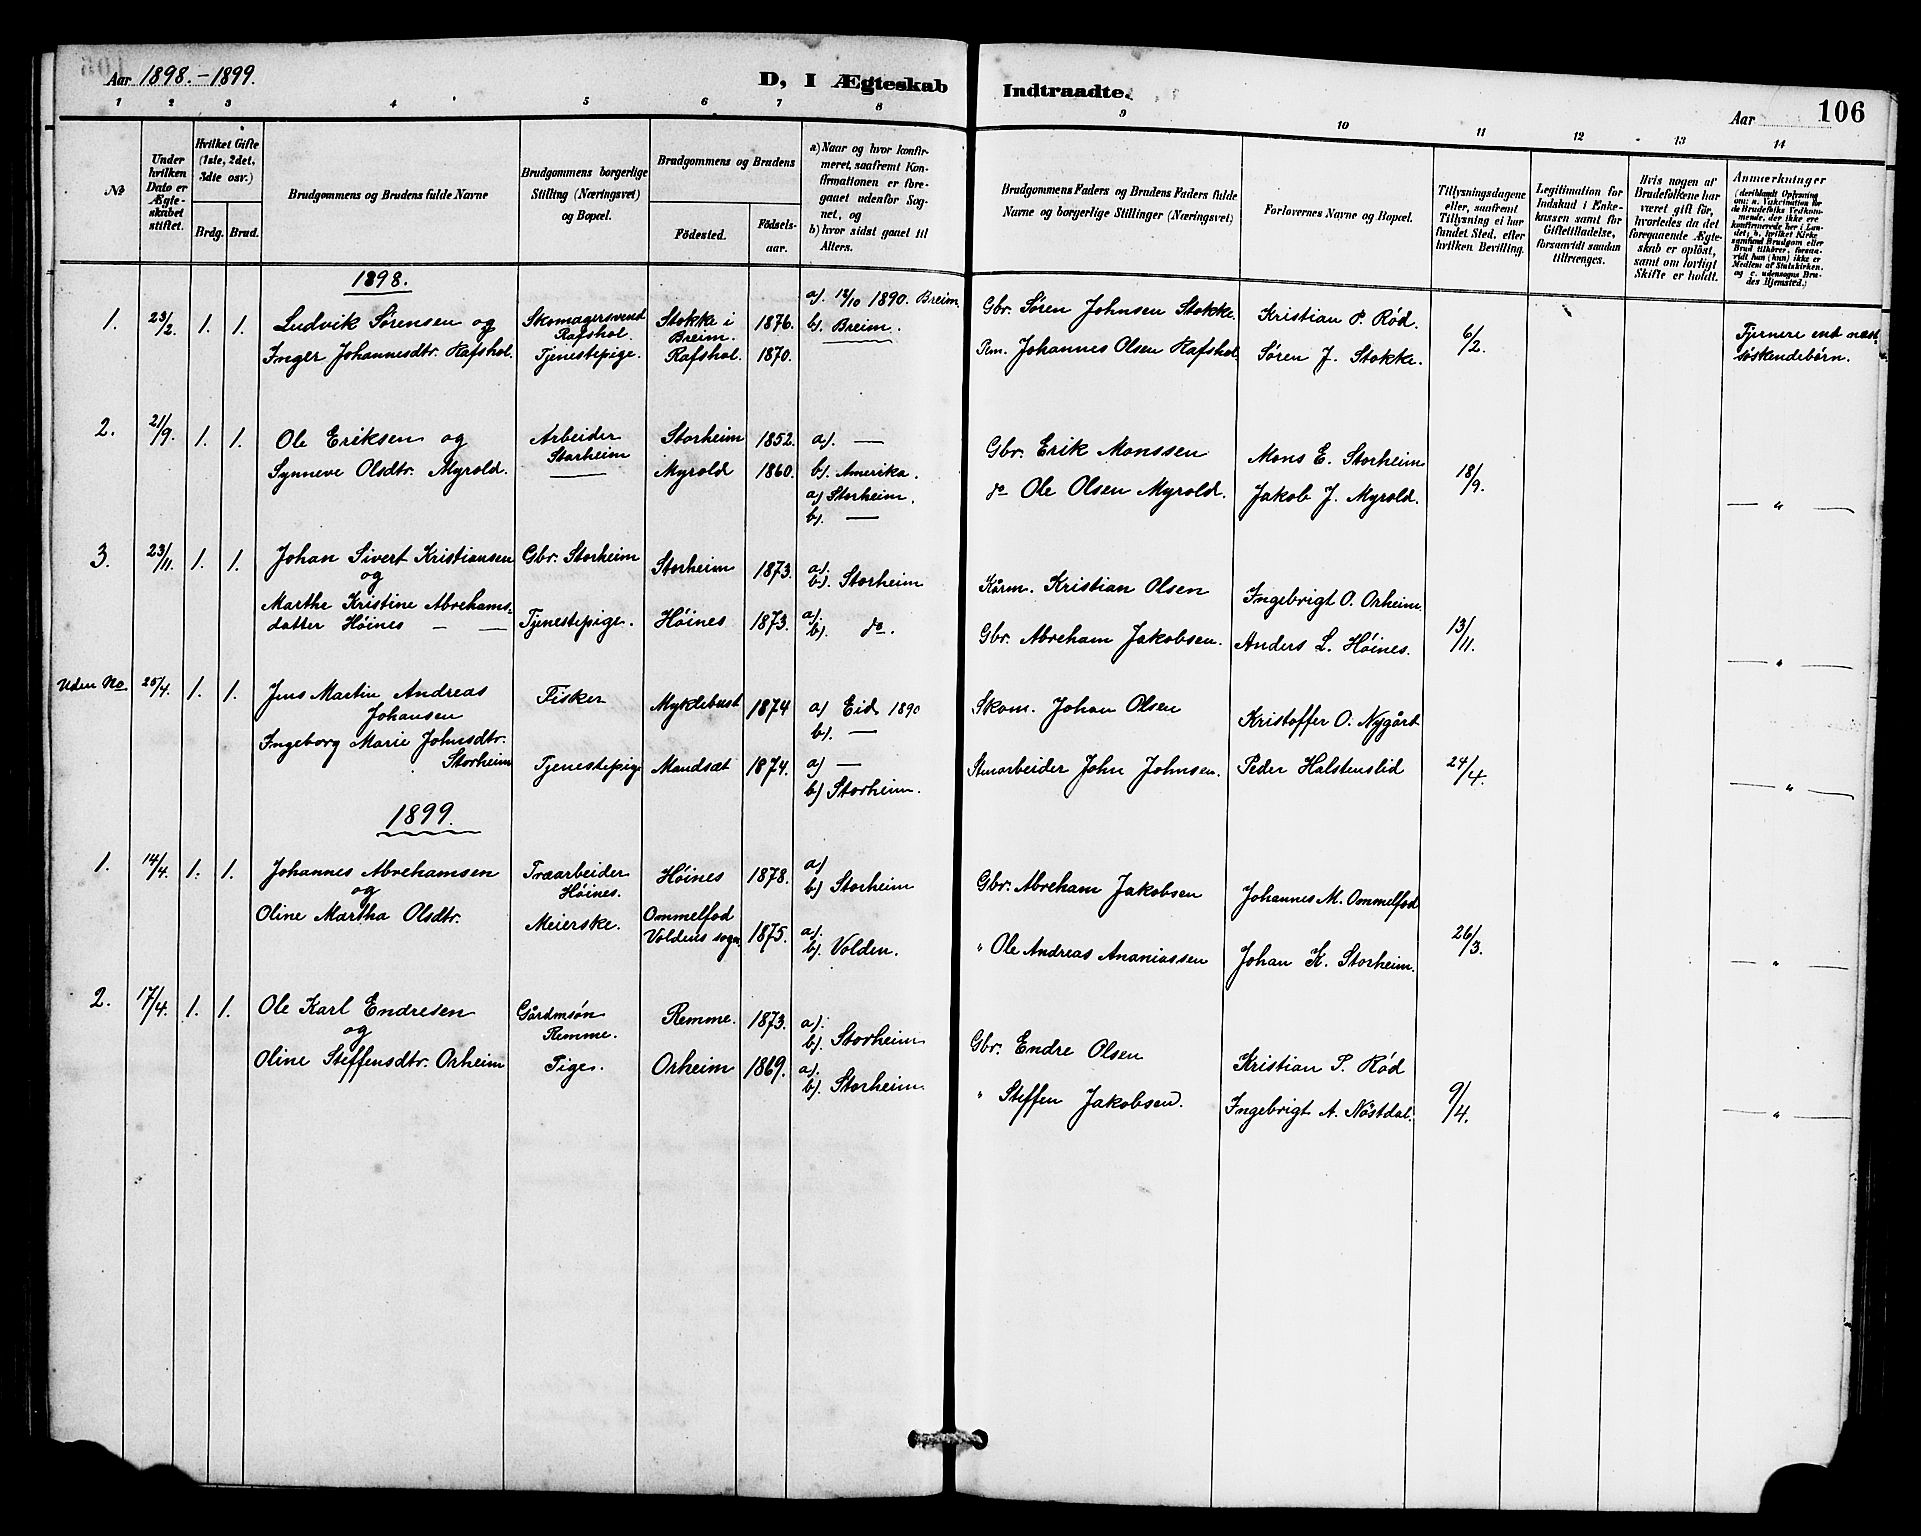 Aar 1898.-1899.
D, I Ægteskab Indtraadte.
Aar 106
1 2 3 4 5 6 7 8 9 10 11 12 13 14
No
Under hvilken Dato er Ægteskabet stiftet.
Hvilket Gifte (1ste, 2det, 3die osv.)
Brdg. Brud.
Brudgommens og Brudens fulde Navne
Brudgommens borgerlige Stilling (Næringsvei) og Bopæl.
Brudgommens og Brudens
Fødested. Fødselsaar.
a) Naar og hvor konfirmeret, saafremt Konfirmationen er foregaaet udenfor Sognet, og
b) hvor sidst gaaet til Alters.
Brudgommens Faders og Brudens Faders fulde Navne og borgerlige Stillinger (Næringsvei)
Forlovernes Navne og Bopæl.
Tillysningsdagene eller, saafremt Tillysning ei har fundet Sted, efter hvilken Bevilling.
Legitimation for Indskud i Enkekassen samt for Giftetilladelse, forsaavidt saadan tiltrænges.
Hvis nogen af Brudefolkene har været gift før, hvorledes da det foregaaende Ægteskab er opløst, samt om lovligt Skifte er holdt.
Anmerkninger
(deriblandt Oplysning om: a. Vakcination for de Brudefolks Vedkommende, der ikke ere konfirmerede her i Landet; b. hvilket Kirkesamfund Brudgom eller Brud tilhører, forsaavidt han (hun) ikke er Medlem af Statskirken, og c. udensogns Brudes Hjemsted.)
1898.
1. 23/2 1. 1. Ludvik Sørensen og Skomagersvend Rafshol. Stokke i Breim. 1876. a). 12/10 1890. Breim b). Breim. Gbr. Søren Johnsen Stokke. Kristian P. Rød. 6/2. Fjernere end næstsøskendebørn.
Inger Johannesdtr. Rafshol. Tjenestepige. Rafshol. 1870. Pm. Johannes Olsen Rafshol. Søren J. Stokke.
2. 21/9. 1. 1. Ole Eriksen og Arbeider Storheim Storheim 1852. a). — b). Amerika. Gbr. Erik Monssen Mons E. Storheim 18/9. — " —
Synneve Olsdtr. Myrold. — Myrold 1860. a) Storheim. b). — do Ole Olsen Myrold. Jakob J. Myrold.
3. 23/11. 1. 1. Johan Sivert Kristiansen og Gbr. Storheim Storheim 1873. a). b). Storheim Kårm. Kristian Olsen Ingebrigt O. Orheim 13/11. — " —
Marthe Kristine Abrehamsdatter Høines — — Tjenestepige. Høines 1873. a). b). do. Gbr. Abreham Jakobsen. Anders L. Høines.
Uden No 25/4. 1. 1. Jens Martin Andreas Johansen Fisker Myklebust 1874 a) Eid 1890 b). — Skom. Johan Olsen Kristoffer O. Nygård 24/4. — " —
Ingeborg Marie Johnsdtr. Storheim Tjenestepige Mandsæt 1874. a) — b) Storheim. Stenarbeider John Johnsen. Peder Halstenslid
1899.
1. 14/4. 1. 1. Johannes Abrehamsen og Træarbeider Høines. Høines 1878. a) b) Storheim Gbr. Abreham Jakobsen Johannes M. Ommelfod 26/3. — " —
Oline Martha Olsdtr. Meierske. Ommelfod Voldens sogn. 1875. a). b). Volden. " Ole Andreas Ananiassen Johan K. Storheim.
2. 17/4. 1. 1. Ole Karl Endresen og Gårdmsøn Remme. Remme. 1873. a). b). Storheim Gbr. Endre Olsen Kristian P. Rød 9/4. — " —
Oline Steffensdtr. Orheim Pige. Orheim 1869. a). b). Storheim " Steffen Jakobsen. Ingebrigt A. Nøstdal.